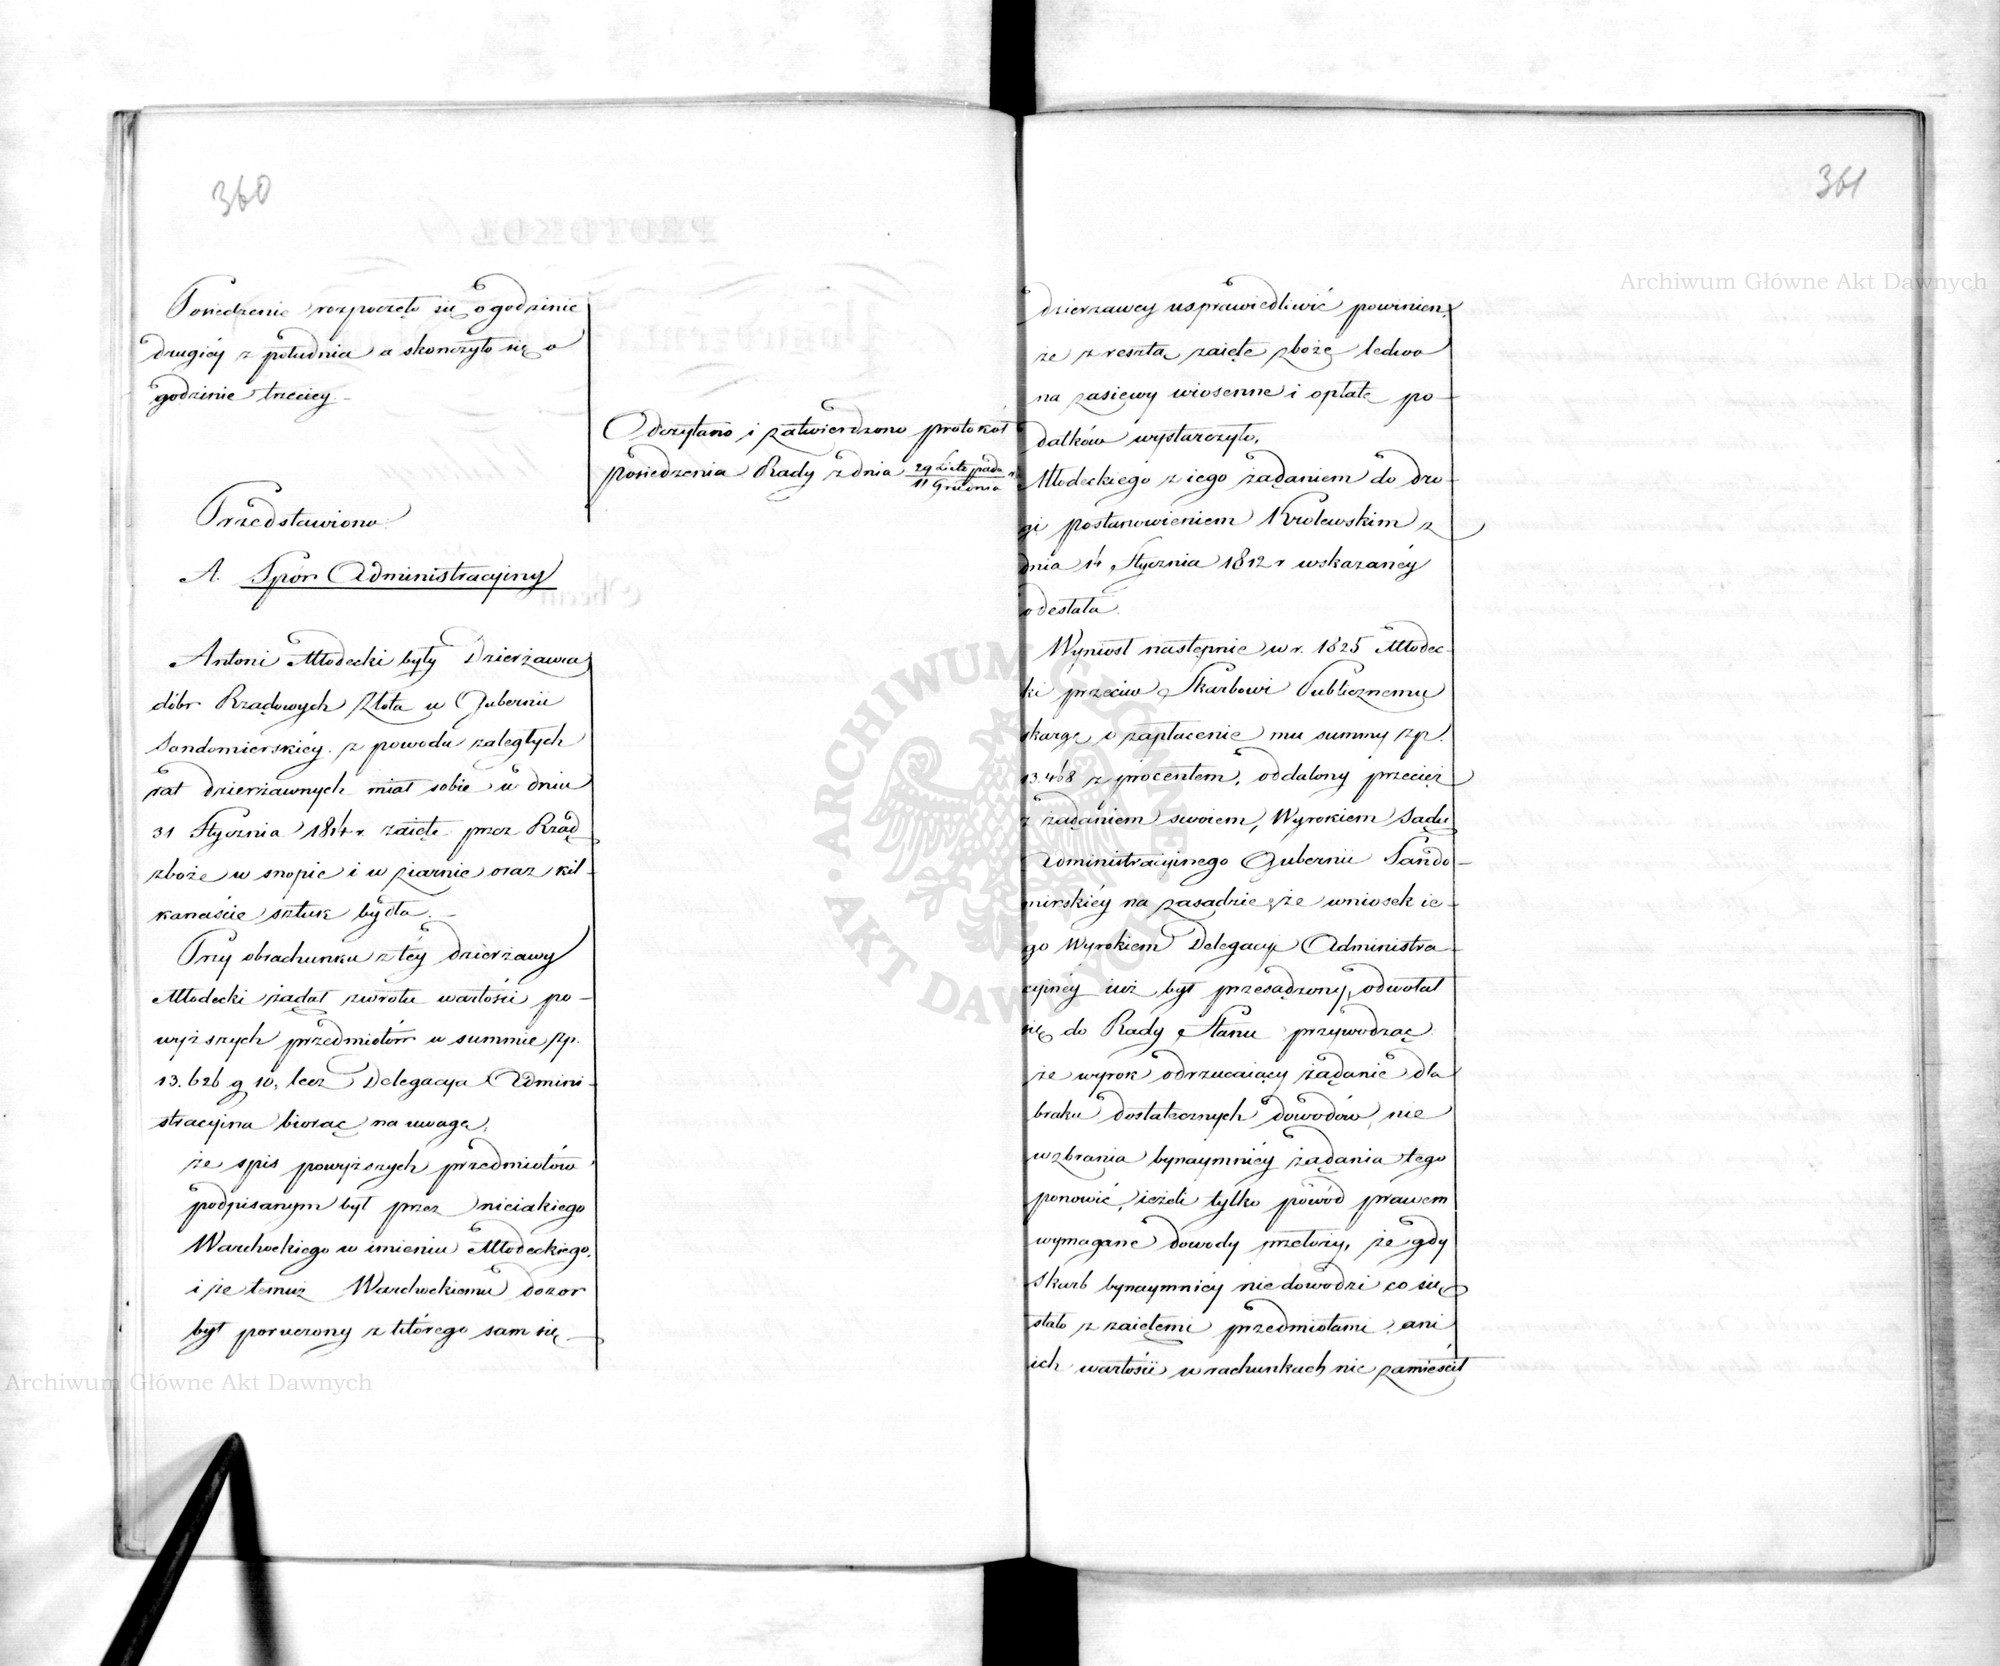 360
Posiedzenie rozpoczęło się o godzinie
drugiéy z południa a skończyło się o
godzinie trzeciey.
Odczytano i zatwierdzono protokół
posiedzenia Rady z dnia 29 Listopada / 11 Grudnia
Przedstawiono
A. Spór Administracyiny
Antoni Młodecki były Dzierżawca
dóbr Rządowych Złota w Gubernii
Sandomierskiéy. z powodu zaległych
rat dzierżawnych miał sobie w dniu
31 Stycznia 1814 r. zaięte przez Rząd
zboże w snopie i w ziarnie oraz kil-
kanaście sztuk bydła. -
Przy obrachunku z téy dzierżawy
Młodecki żądał zwrotu wartości po-
wyższych przedmiotów w summie zp.
13.626 g 10, lecz Delegacya Admini-
stracyina biorąc na uwagę,
że spis powyższych przedmiotów
podpisanym był przez nieiakiego
Warchockiego w imieniu Młodeckiego,
i że temuż Warchockiemu dozor
był poruczony z którego sam się
361
dzierzawcy usprawiedliwić powinien,
że zresztą zaięte zboże ledwo
na zasiewy wiosenne i opłatę po-
datków wystarczyło,
Młodeckiego z iego żądaniem do dro-
gi postanowieniem Królewskim z
dnia 14 Stycznia 1812 r wskazanéy
odesłała.
Wyniosł następnie w r. 1825 Młodec-
ki przeciw Skarbowi Publicznemu
skargę o zapłacenie mu summy zp.
13.468 z procentem, oddalony przecież
z żądaniem swoiem, Wyrokiem Sądu
Administracyinego Gubernii Sando-
mirskiéy na zasadzie że wniosek ie-
go Wyrokiem Delegacyi Administra-
cyinéy iuż był przesądzony, odwołał
się do Rady Stanu przywodząc
że wyrok odrzucaiący żądanie dla
braku dostatecznych dowodów, nie
wzbrania bynaymniéy żądania tego
ponowić, ieżeli tylko powód prawem
wymagane dowody przełoży, że gdy
Skarb bynaymniéy nie dowodzi co się
stało z zaiętemi przedmiotami, ani
ich wartości w rachunkach nie zamieścił
Archiwum Główne Akt Dawnych
Archiwum Główne Akt Dawnych
ARCHIWUM GŁÓWNE AKT DAWNYCH